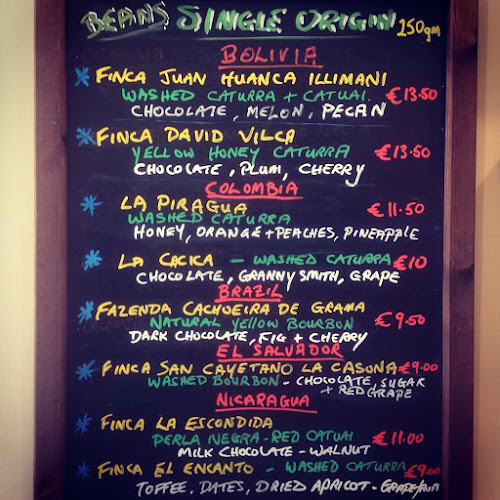 BEANS SINGLE ORIGIN 250gm
BOLIVIA
* FINCA JUAN HUANCA ILLIMANI
WASHED CATURRA + CATUAI €13.50
CHOCOLATE, MELON, PECAN
* FINCA DAVID VILCA
YELLOW HONEY CATURRA €13.50
CHOCOLATE, PLUM, CHERRY
COLOMBIA
* LA PIRAGUA €11.50
WASHED CATURRA
HONEY, ORANGE + PEACHES, PINEAPPLE
* LA CACICA - WASHED CATURRA €10
CHOCOLATE, GRANNY SMITH, GRAPE
BRAZIL
* FAZENDA CACHOEIRA DE GRAMA
NATURAL YELLOW BOURBON €9.50
DARK CHOCOLATE, FIG + CHERRY
EL SALVADOR
* FINCA SAN CAYETANO LA CASONA €9.00
WASHED BOURBON - CHOCOLATE, SUGAR
+ RED GRAPE
NICARAGUA
* FINCA LA ESCONDIDA
PERLA NEGRA - RED CATUAI €11.00
MILK CHOCOLATE - WALNUT
* FINCA EL ENCANTO - WASHED CATURRA €9.00
TOFFEE, DATES, DRIED APRICOT - GRAPEFRUIT